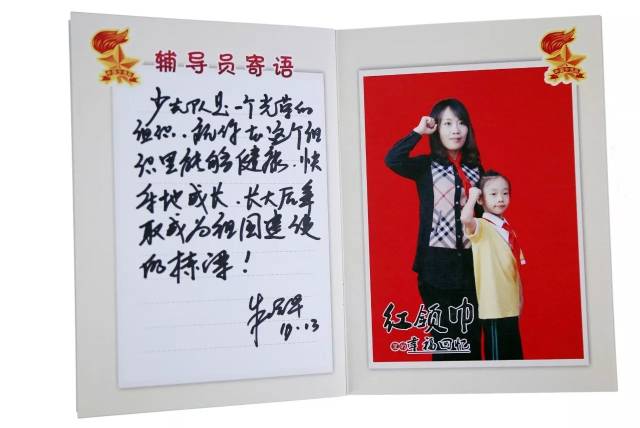 辅导员寄语
少先队是一个光荣的
组织.祝你在这个组
织里能够健康.快
乐地成长.长大后争
取成为祖国建设
的栋梁!
10.13
红领巾
幸福回忆